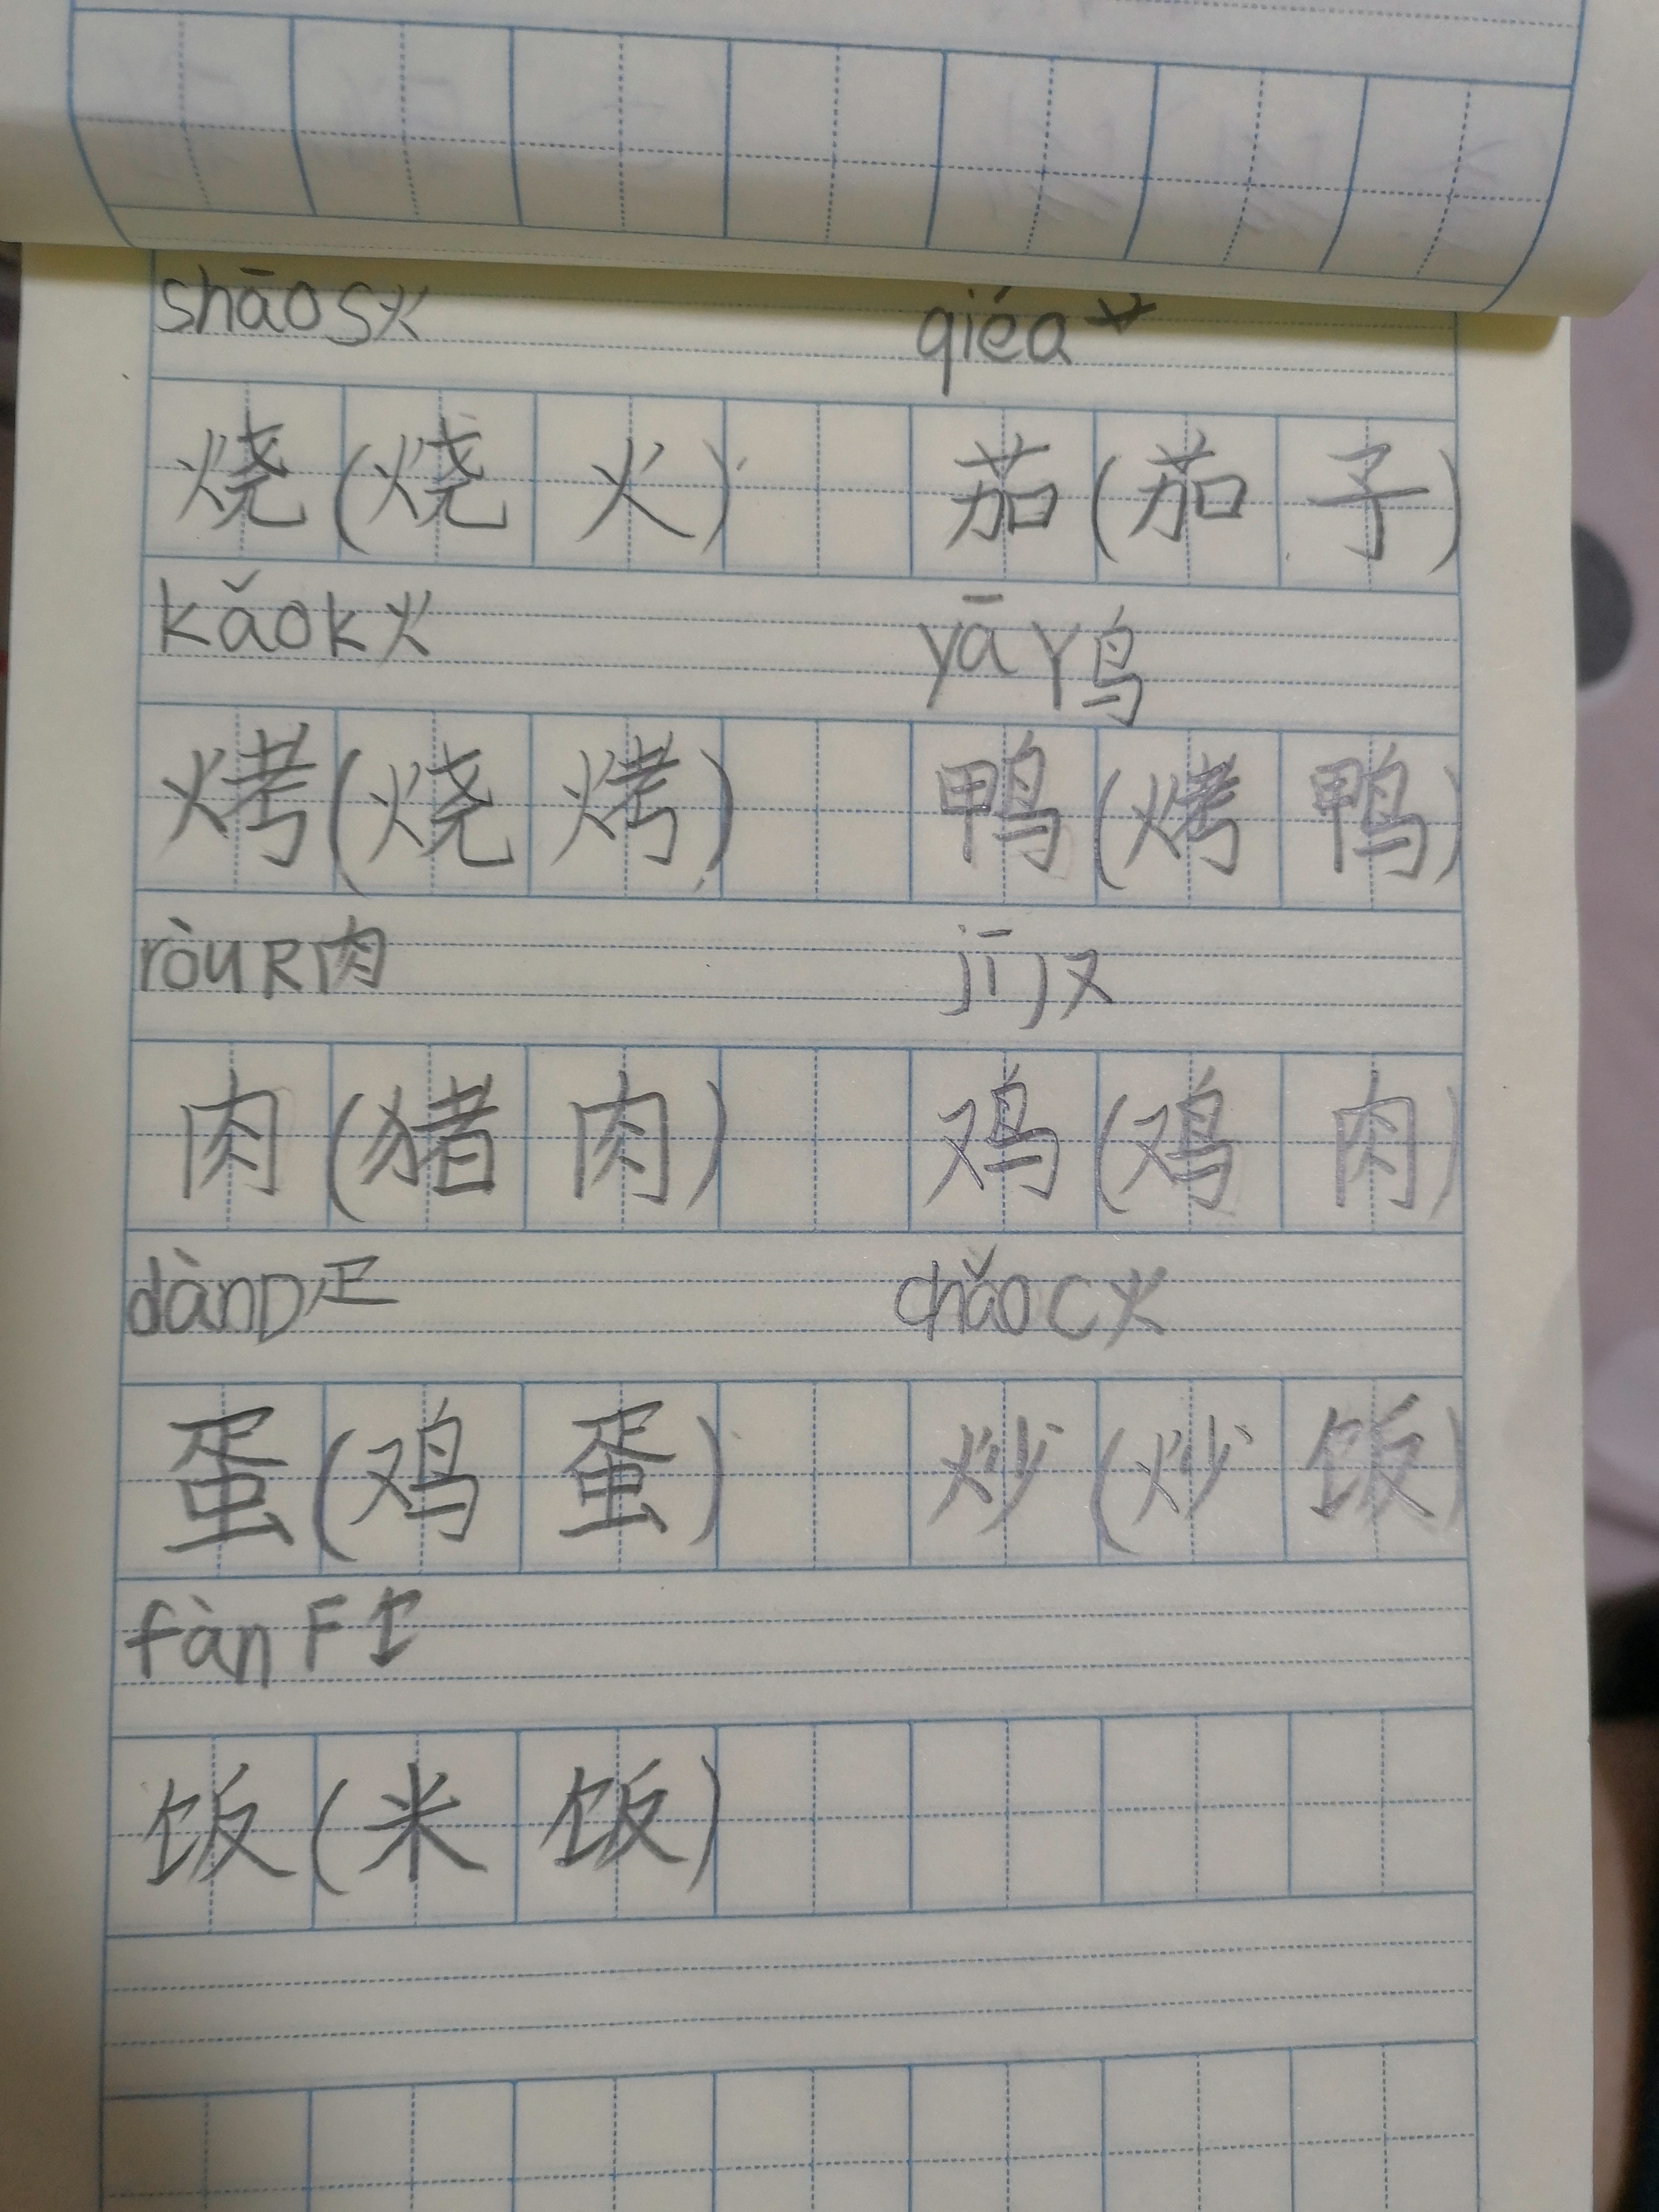 shāo S火 qiéQ艹
烧(烧火) 茄(茄子)
kǎo K火 yā Y鸟
烤(烧烤) 鸭(烤鸭)
ròu R肉 jī J又
肉(猪肉) 鸡(鸡肉)
dàn D疋 chǎo C火
蛋(鸡蛋) 炒(炒饭)
fàn F饣
饭(米饭)